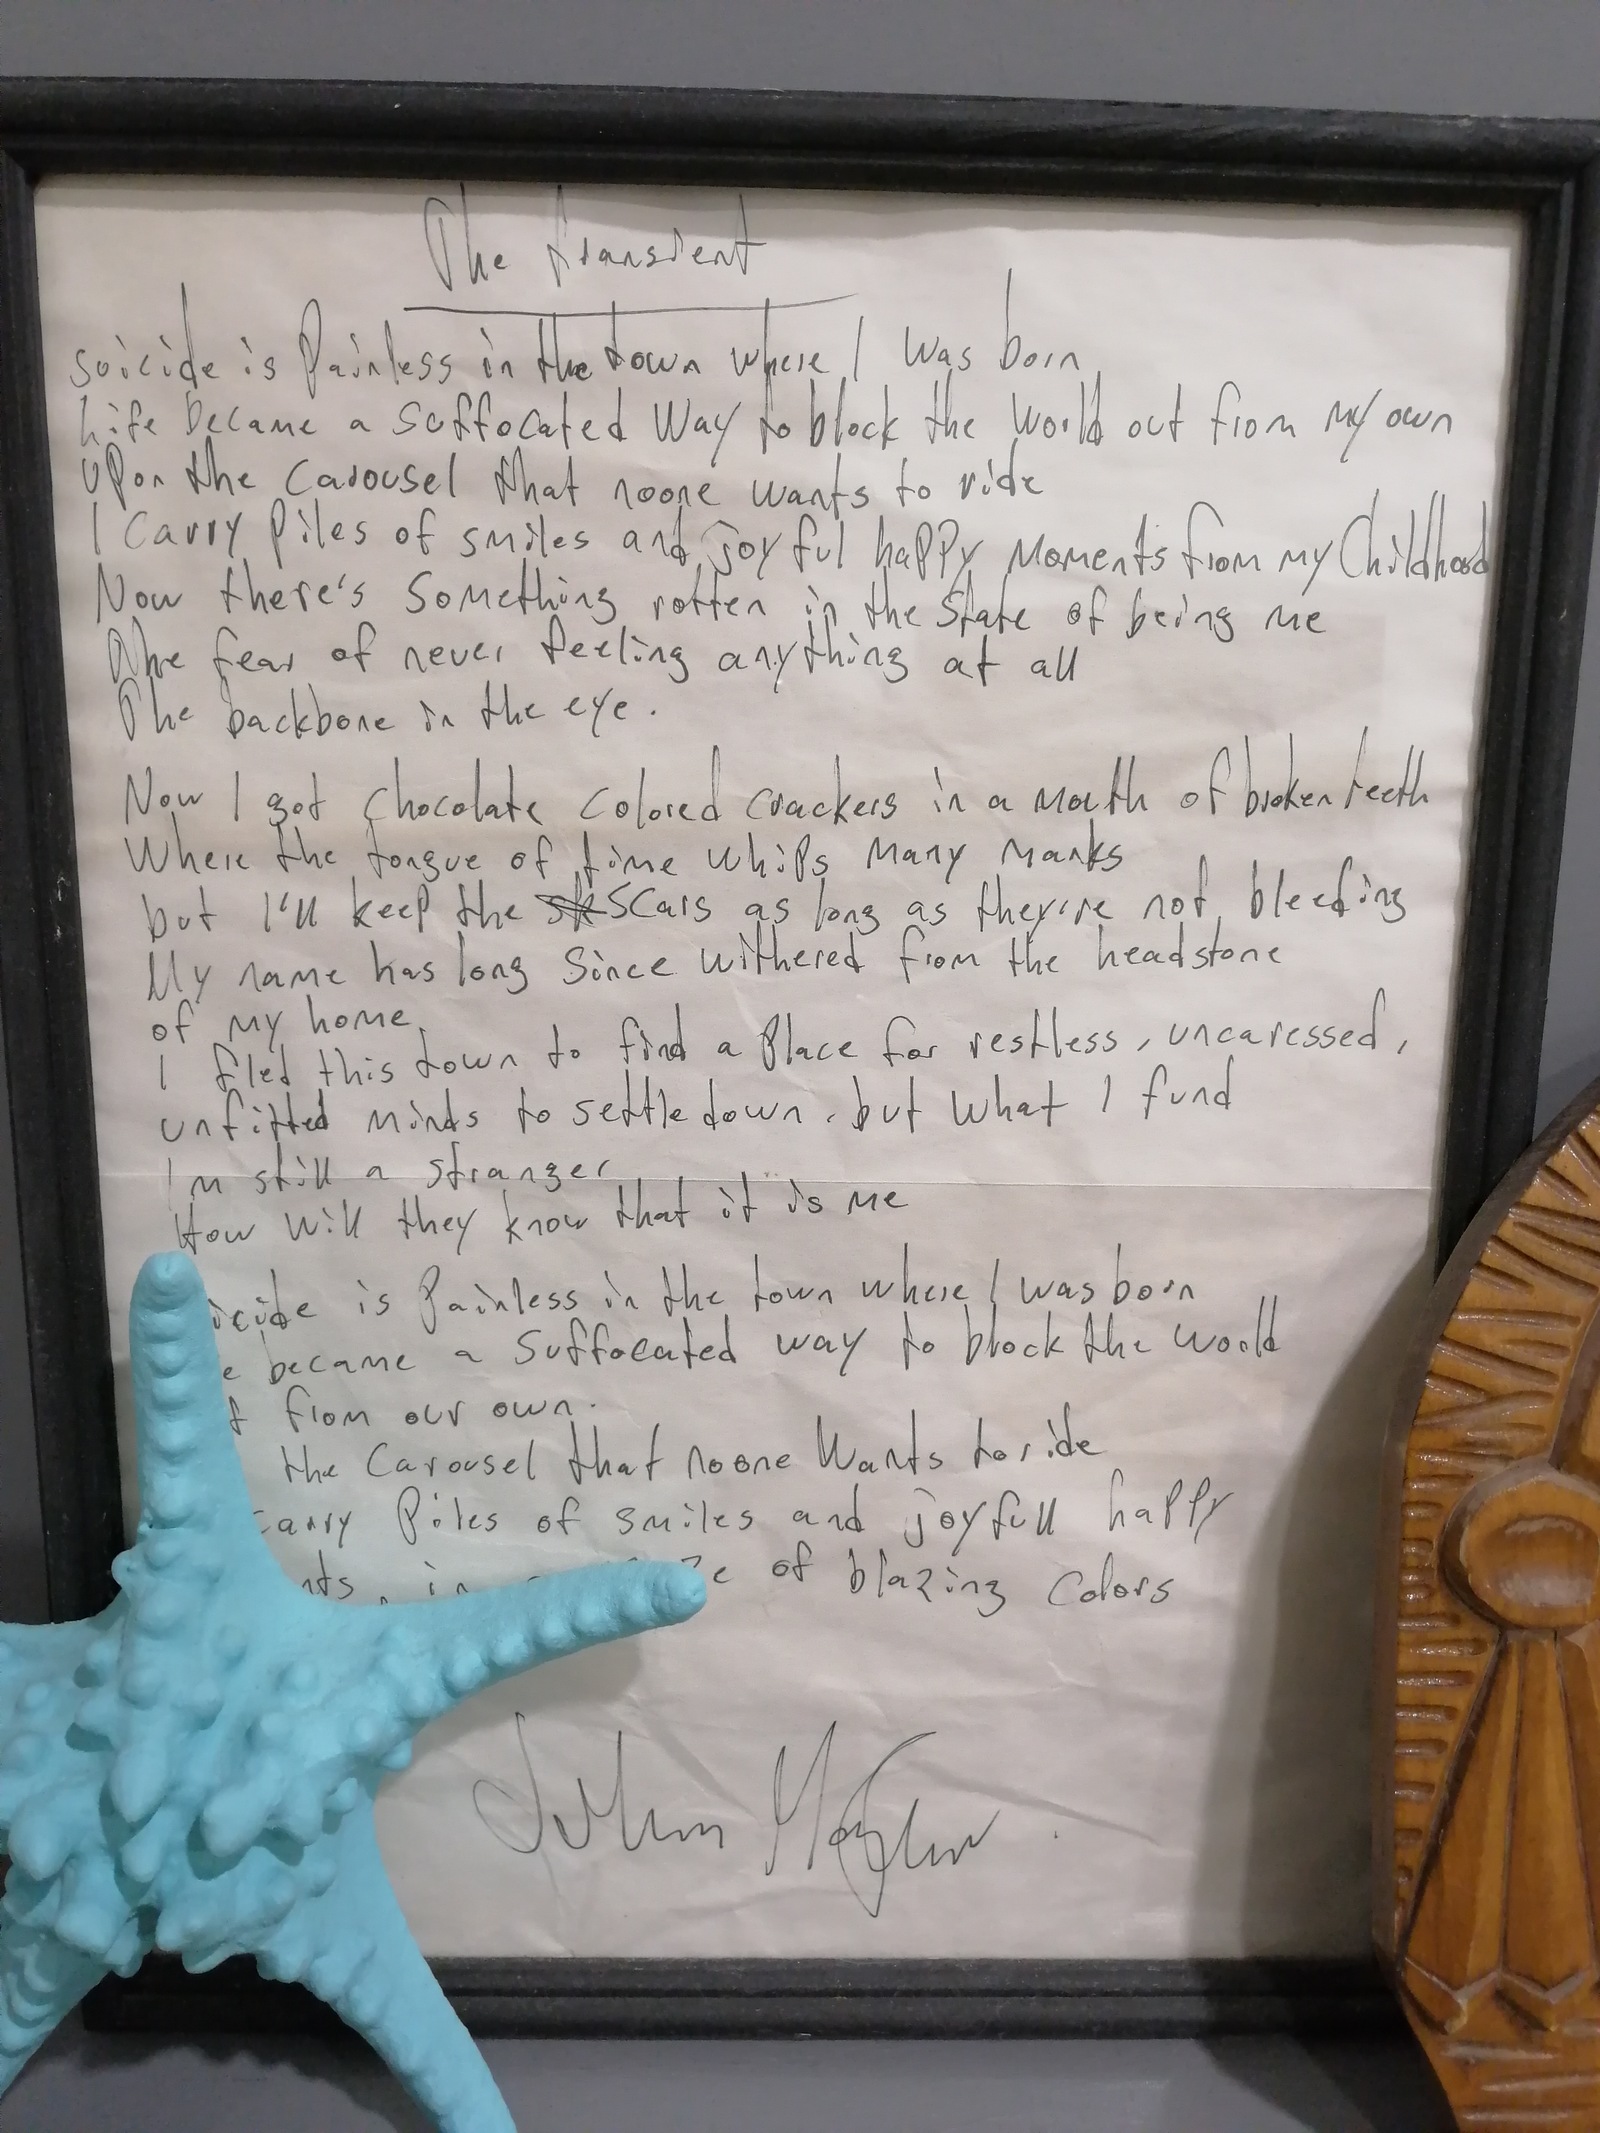 The transient
suicide is Painless in the town where I was born
Life became a suffocated way to block the world out from my own
upon the carousel that noone wants to ride
I carry Piles of smiles and joyful happy moments from my Childhood
Now there's something rotten in the state of being me
The fear of never feeling anything at all
The backbone in the eye.
Now I got chocolate colored crackers in a mouth of broken teeth
Where the tongue of time whips many marks
but I'll keep the scars as long as they're not bleeding
My name has long since withered from the headstone
of my home.
I fled this town to find a Place for restless, uncaressed,
unfitted minds to settle down. but what I fund
I'm still a stranger
How will they know that it is me
icide is Painless in the town where I was born
e became a suffocated way to block the world
t from our own.
the carousel that noone wants to ride
carry Piles of smiles and joyfull happy
nts, in of blazing colors